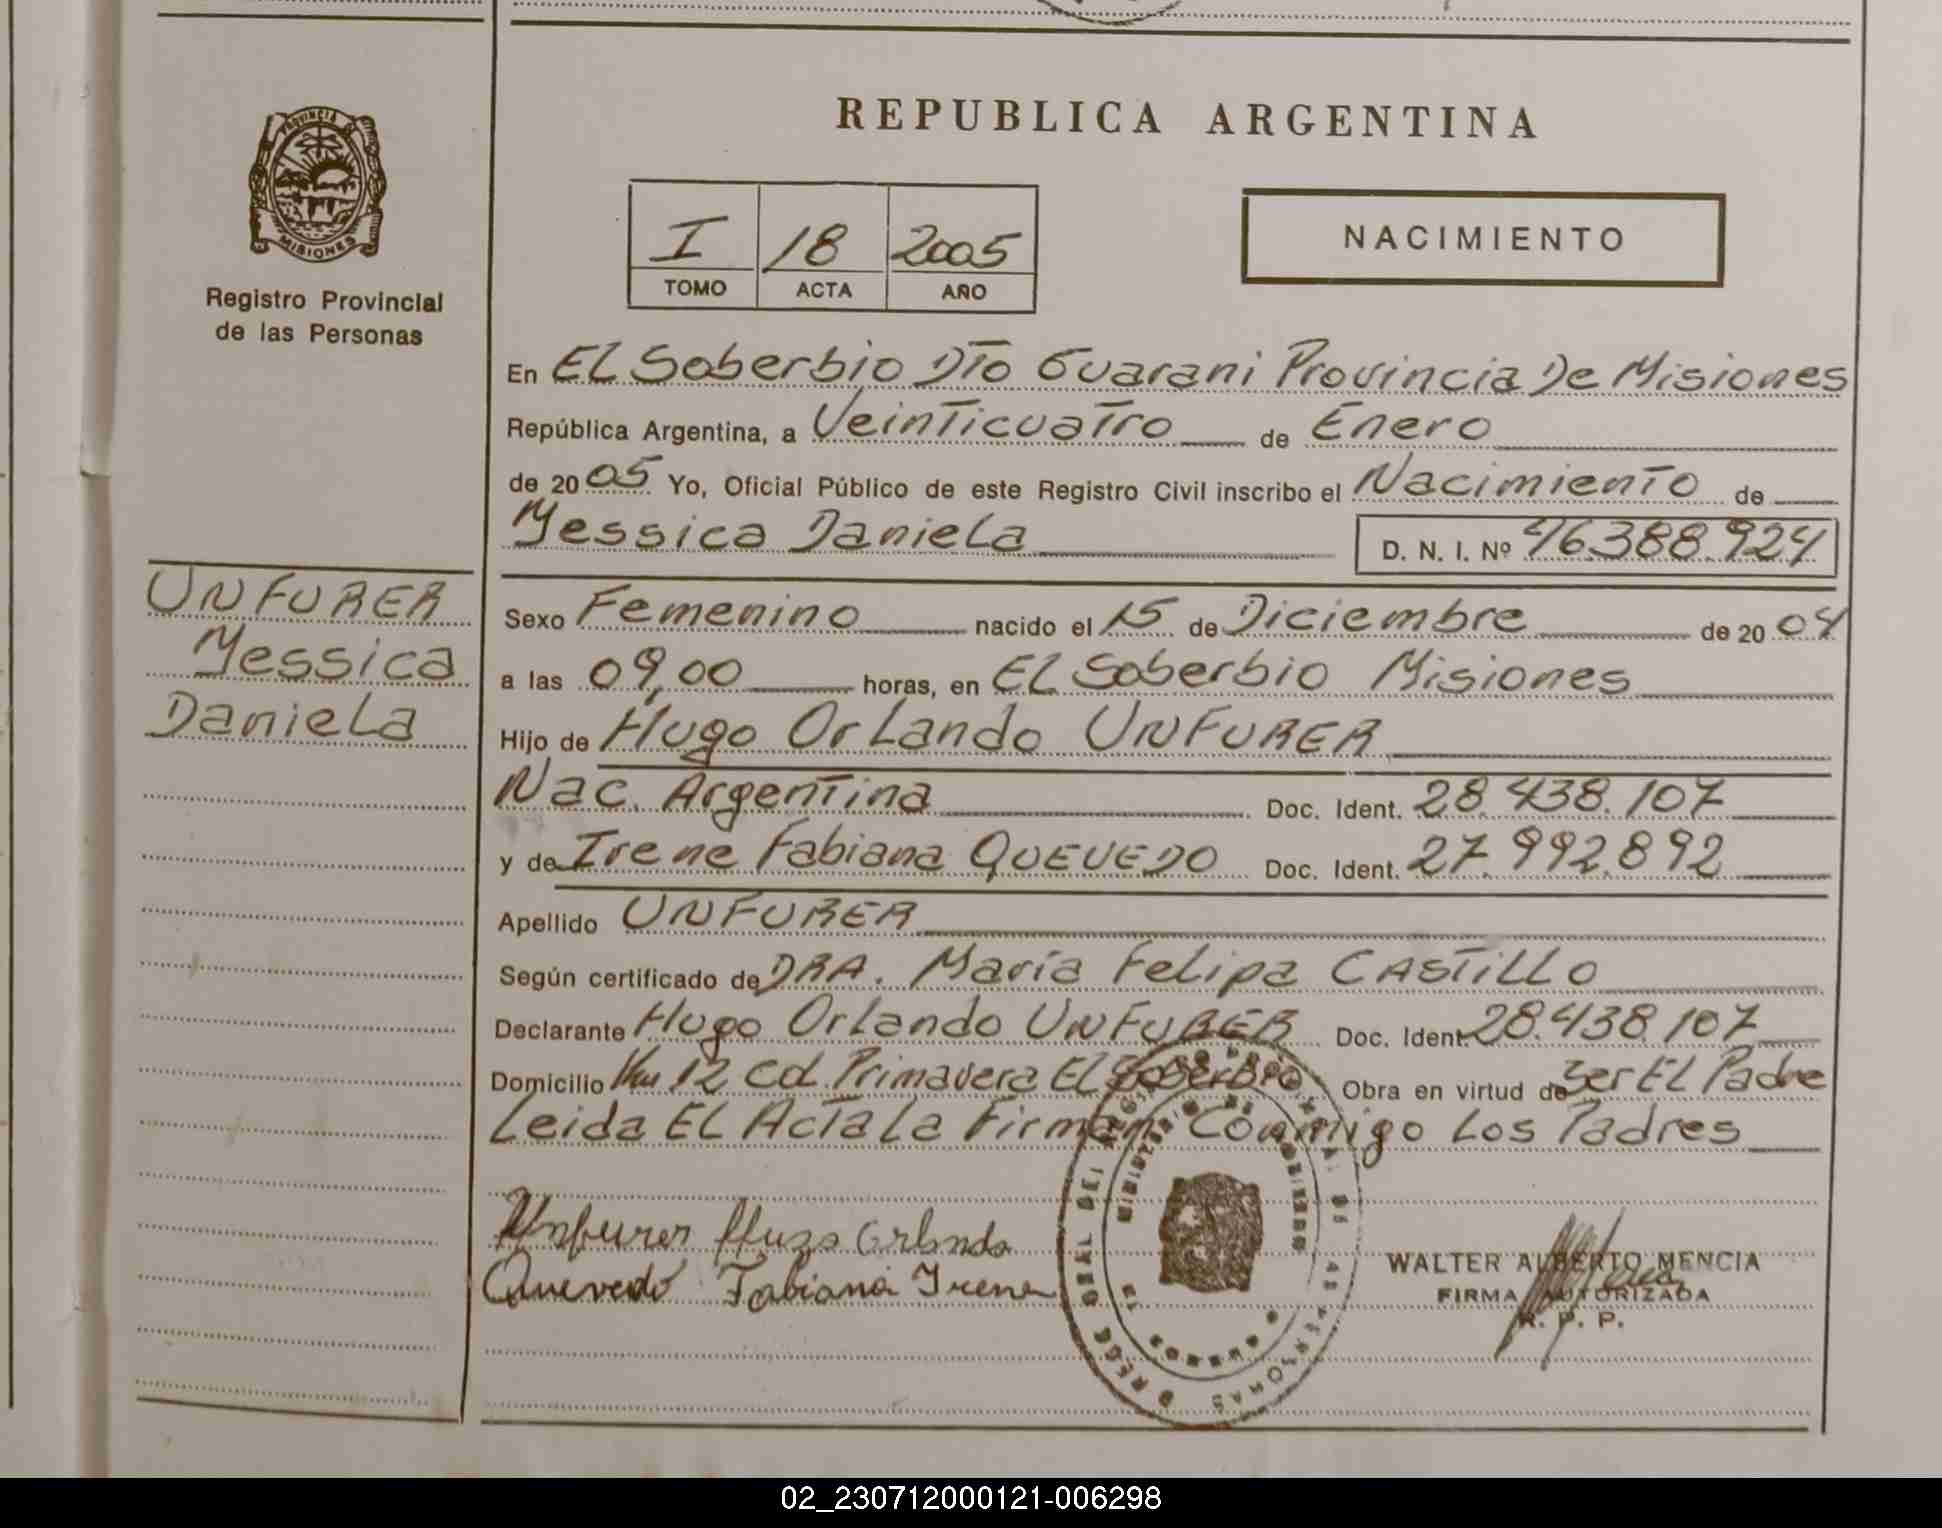 PROVINCIA DE
MISIONES
Registro Provincial
de las Personas
UNFURER
Yessica
Daniela
REPUBLICA ARGENTINA
I 18 2005
TOMO ACTA AÑO
NACIMIENTO
En EL Soberbio DTO Guarani Provincia De Misiones
República Argentina, a VeinTicuaTro de Enero
de 2005 Yo, Oficial Público de este Registro Civil inscribo el NacimienTo de
Yessica Daniela D. N. I. Nº 46.388.924
Sexo Femenino nacido el 15 de Diciembre de 2004
a las 09,00 horas, en EL Soberbio Misiones
Hijo de Hugo OrLando UNFURER
Nac. ArgenTina Doc. Ident. 28.438.107
y de Irene Fabiana QUEVEDO Doc. Ident. 27.992.892
Apellido UNFURER
Según certificado de DRA. María Felipa CASTILLO
Declarante Hugo Orlando UNFURER Doc. Ident. 28.438.107
Domicilio Km 12 Cd. Primavera EL Soberbio Obra en virtud de Ser EL Padre
Leida EL AcTa La Firman Conmigo Los Padres
Unfurer Hugo Orlando
Quevedo Fabiana Irene
WALTER ALBERTO MENCIA
FIRMA AUTORIZADA
R. P. P.
02_230712000121-006298